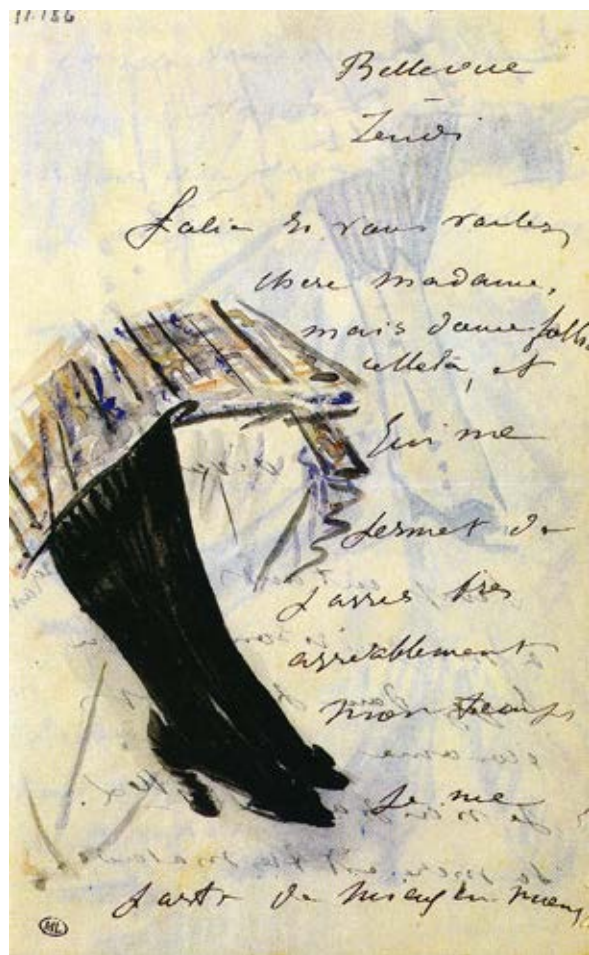 Bellevue
Jeudi
Folie si vous voulez,
chere madame,
mais douce folie
celle là, et
qui me
permet de
passer très
agréablement
mon temps
je me
porte de mieux en mieux
ML